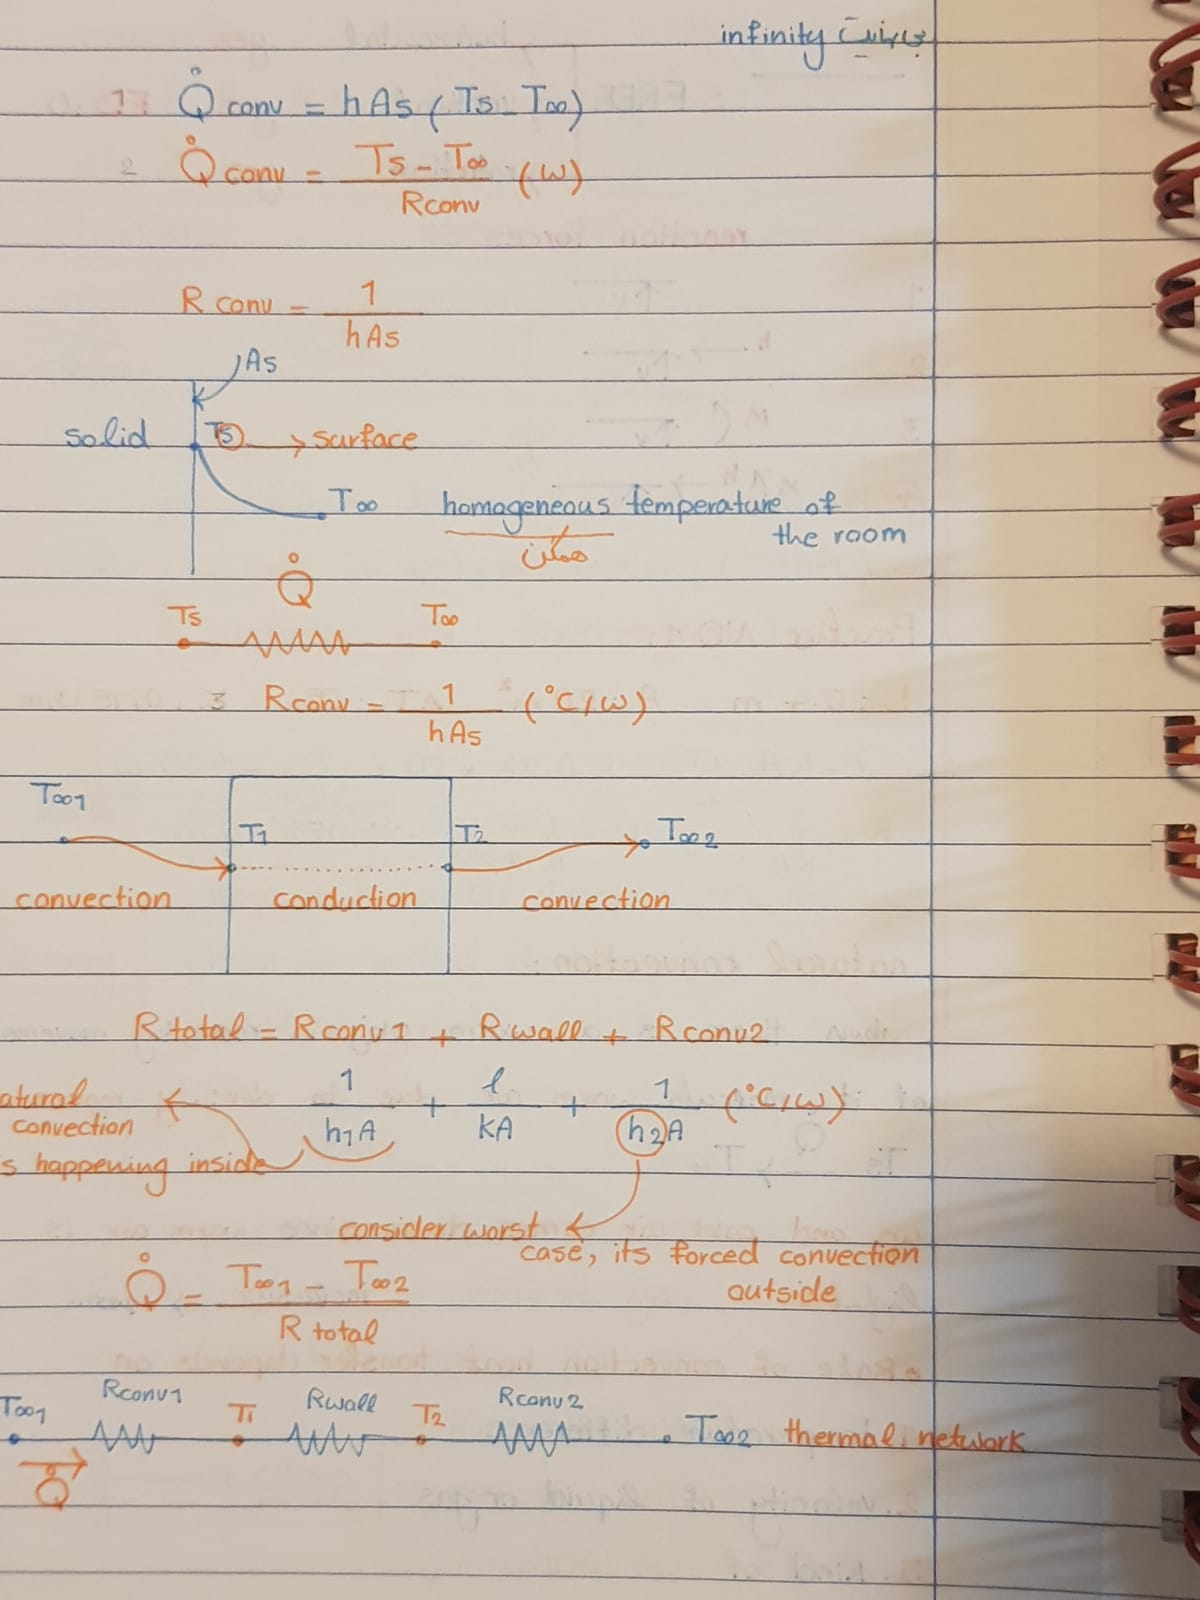 infinity بی‌نهایت
1. Q̊ conv = hAs (Ts - T∞)
2 Q̊ conv = Ts - T∞ / Rconv (W)
R conv = 1 / hAs
As
solid Ts → surface
T∞ homogeneous temperature of
the room
همگن
Q̊
Ts T∞
3 Rconv = 1 / hAs (°C/W)
T∞1 T1 T2 T∞2
convection conduction convection
R total = R conv1 + R wall + R conv2
1 / h1A + l / kA + 1 / h2A (°C/W)
atural
convection
s happening inside
consider worst
case, its forced convection
outside
Q̊ = T∞1 - T∞2 / R total
T∞1 Rconv1 T1 Rwall T2 Rconv2 T∞2 thermal network
Q̊